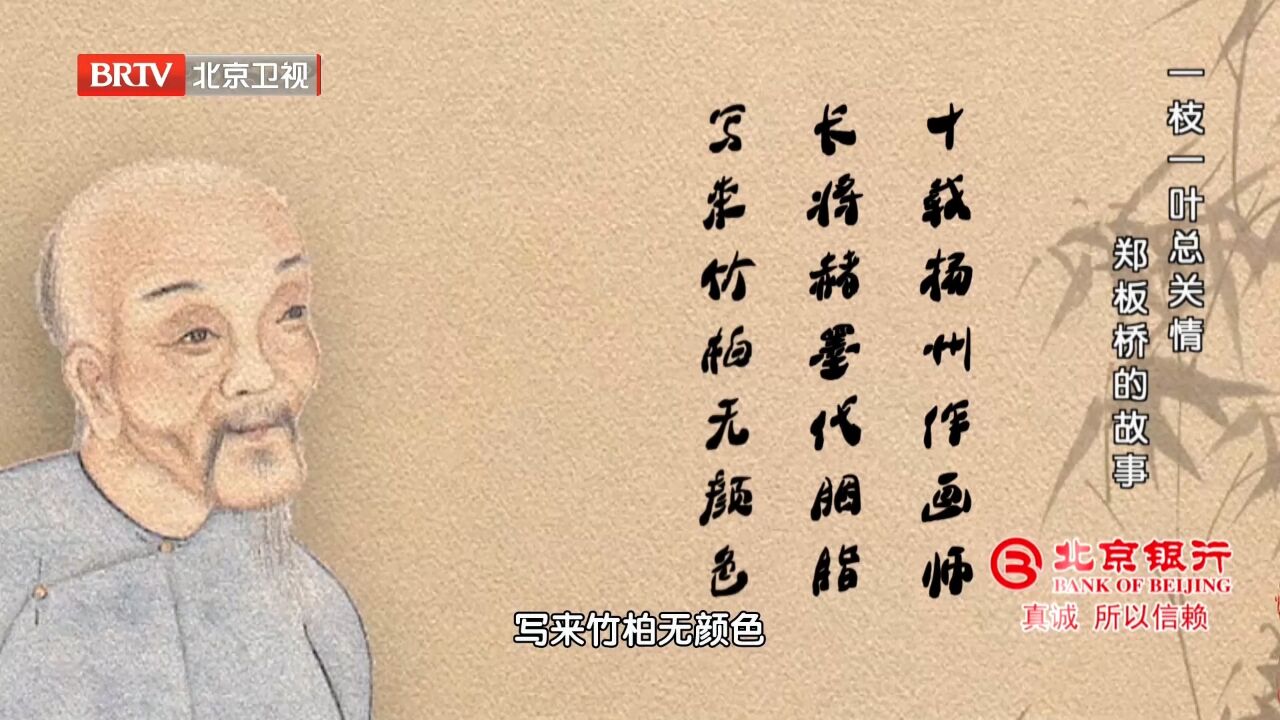 BRTV 北京卫视
一枝一叶总关情
郑板桥的故事
十载扬州作画师
长将赭墨代胭脂
写来竹柏无颜色
北京银行
BANK OF BEIJING
真诚 所以信赖
写来竹柏无颜色